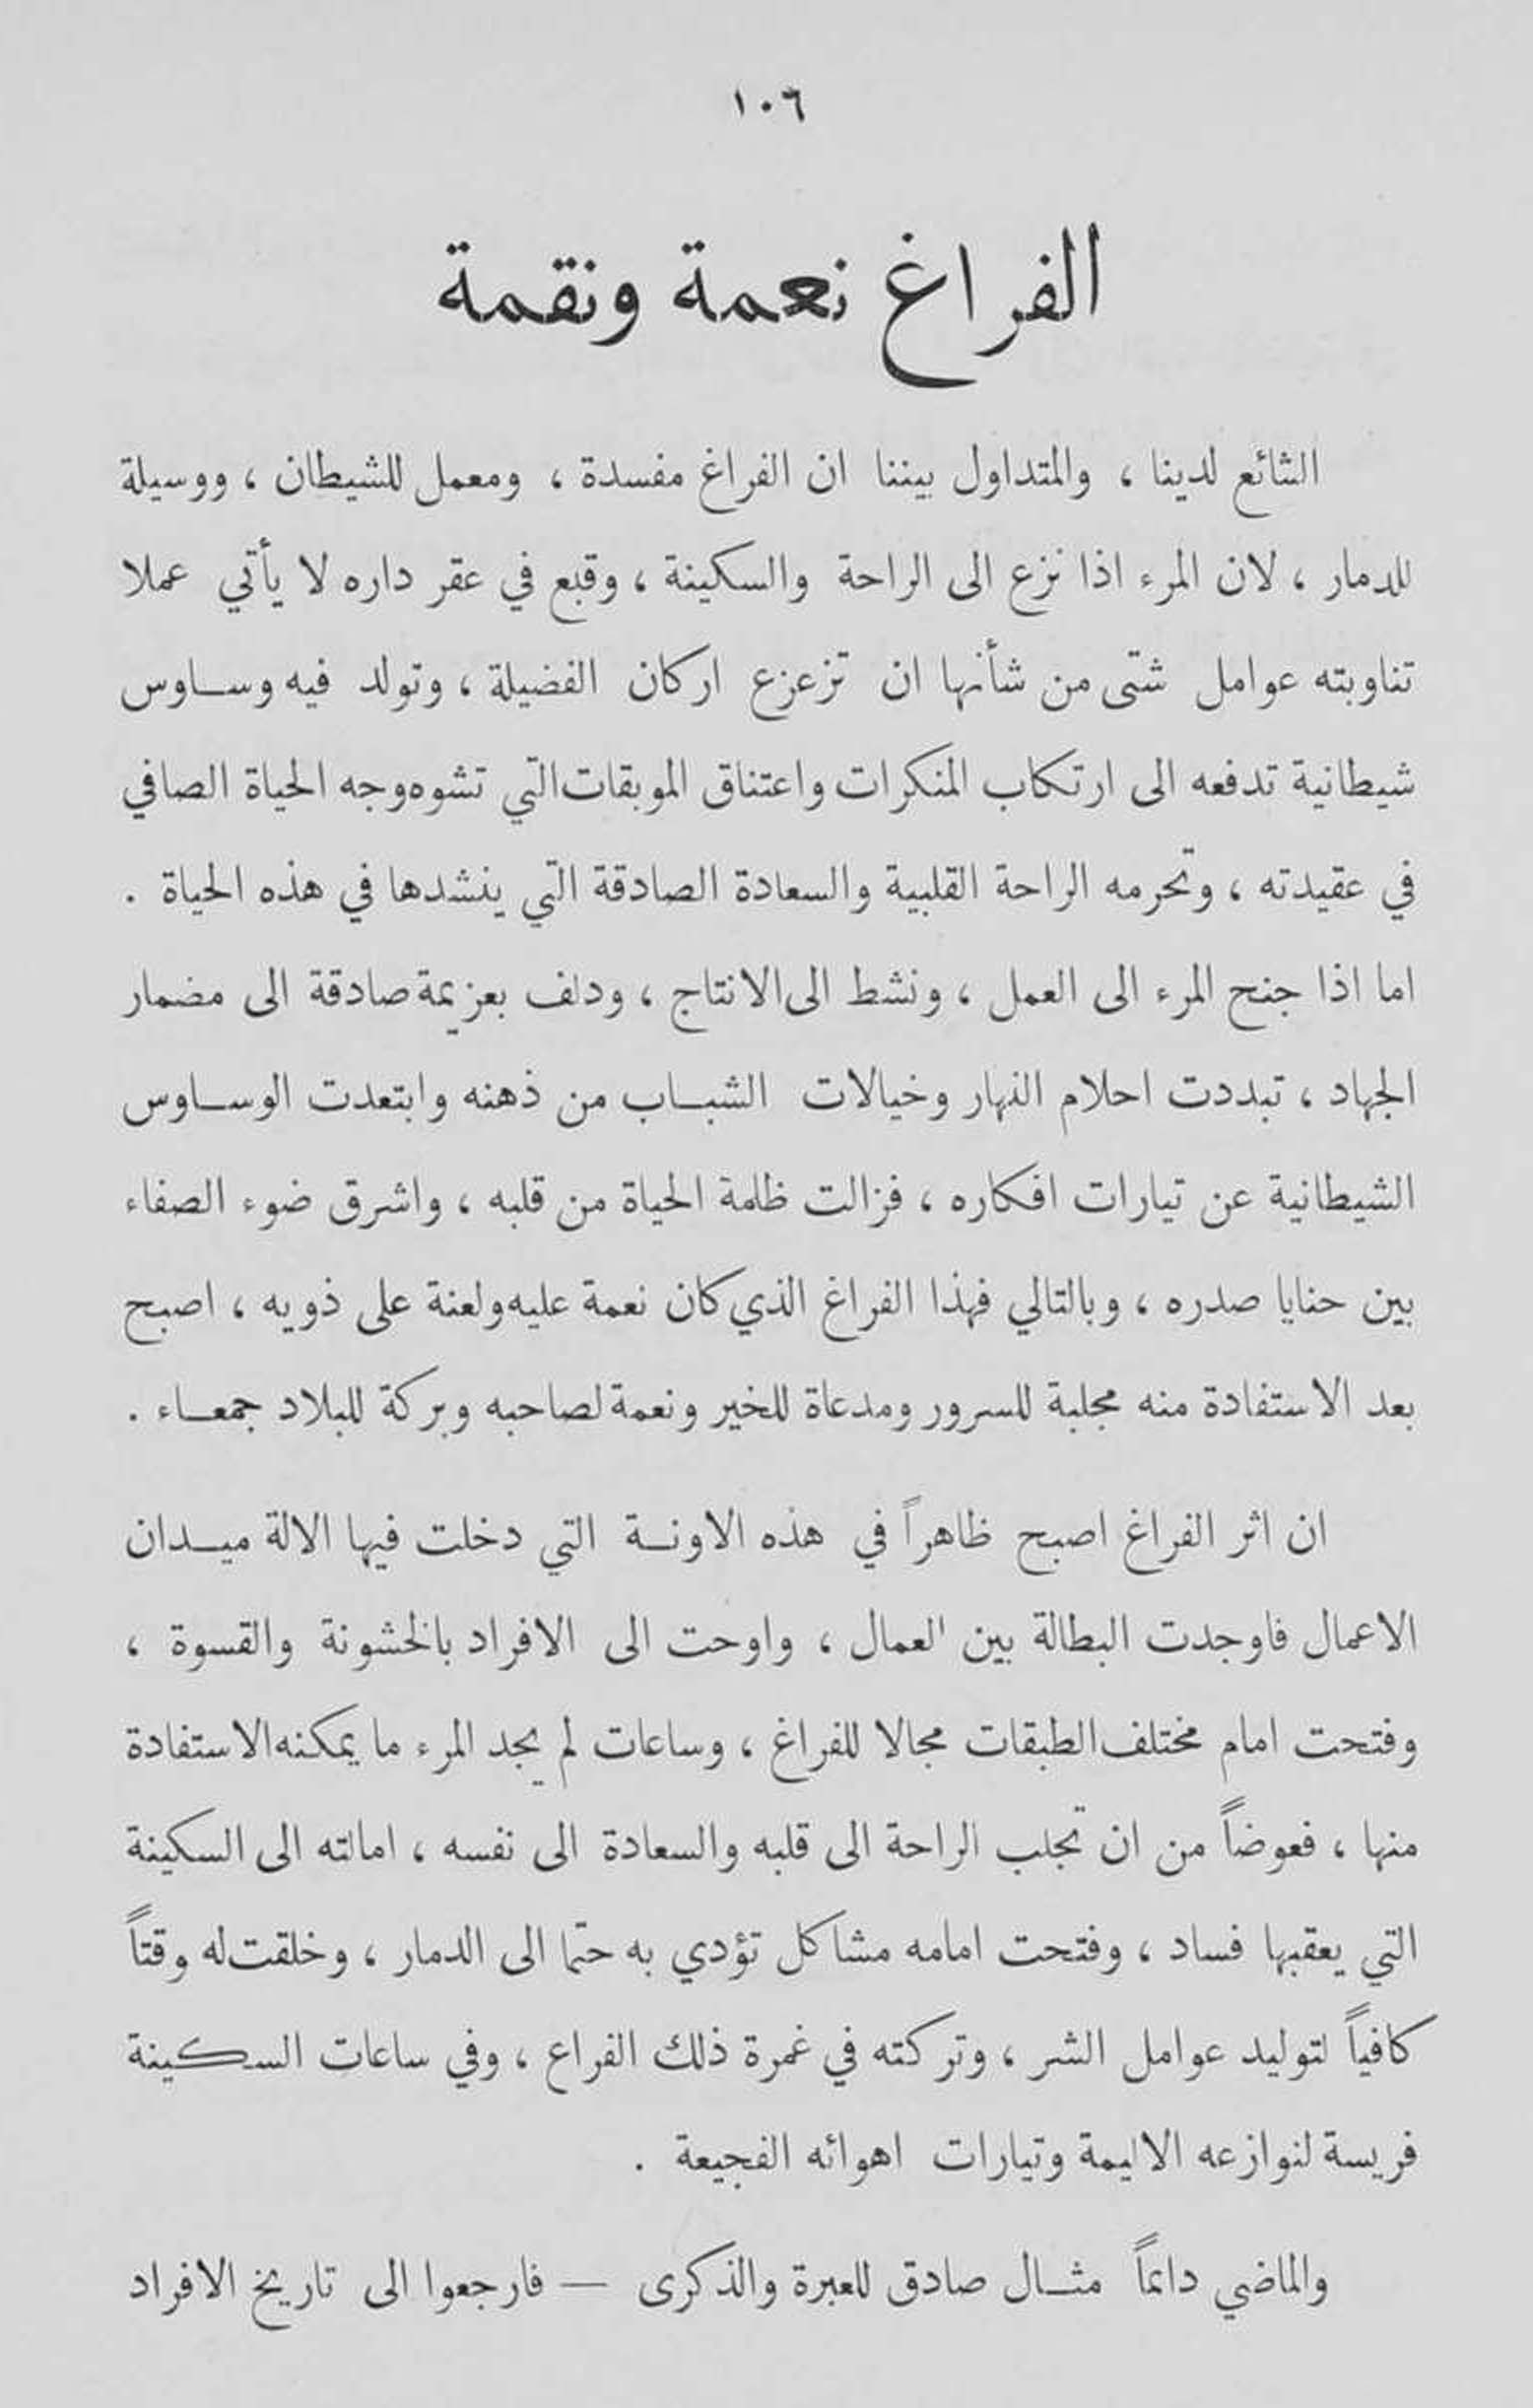 ١٠٦
الفراغ نعمة ونقمة
الشائع لدينا ، والمتداول بيننا ان الفراغ مفسدة ، ومعمل للشيطان ، ووسيلة
للدمار ، لان المرء اذا نزع الى الراحة والسكينة ، وقبع في عقر داره لا يأتي عملا
تناوبته عوامل شتى من شأنها ان تزعزع اركان الفضيلة ، وتولد فيه وساوس
شيطانية تدفعه الى ارتكاب المنكرات واعتناق الموبقات التي تشوه وجه الحياة الصافي
في عقيدته ، وتحرمه الراحة القلبية والسعادة الصادقة التي ينشدها في هذه الحياة .
اما اذا جنح المرء الى العمل ، ونشط الى الانتاج ، ودلف بعزيمة صادقة الى مضمار
الجهاد ، تبددت احلام النهار وخيالات الشباب من ذهنه وابتعدت الوساوس
الشيطانية عن تيارات افكاره ، فزالت ظلمة الحياة من قلبه ، واشرق ضوء الصفاء
بين حنايا صدره ، وبالتالي فهذا الفراغ الذي كان نعمة عليه ولعنة على ذويه ، اصبح
بعد الاستفادة منه مجلبة للسرور ومدعاة للخير ونعمة لصاحبه وبركة للبلاد جمعاء .
ان اثر الفراغ اصبح ظاهراً في هذه الاونة التي دخلت فيها الالة ميدان
الاعمال فاوجدت البطالة بين العمال ، واوحت الى الافراد بالخشونة والقسوة ،
وفتحت امام مختلف الطبقات مجالا للفراغ ، وساعات لم يجد المرء ما يمكنه الاستفادة
منها ، فعوضاً من ان تجلب الراحة الى قلبه والسعادة الى نفسه ، امالته الى السكينة
التي يعقبها فساد ، وفتحت امامه مشاكل تؤدي به حتما الى الدمار ، وخلقت له وقتاً
كافياً لتوليد عوامل الشر ، وتركته في غمرة ذلك الفراع ، وفي ساعات السكينة
فريسة لنوازعه الاليمة وتيارات اهوائه الفجيعة .
والماضي دائماً مثال صادق للعبرة والذكرى — فارجعوا الى تاريخ الافراد